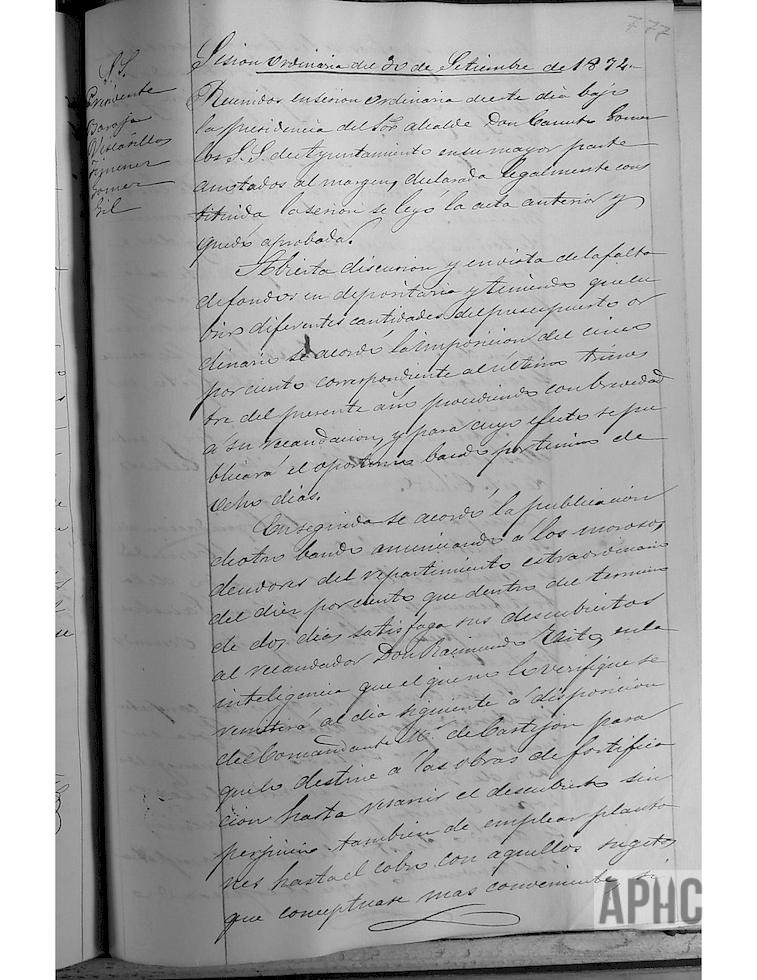 777
Sesion ordinaria del 30 de Setiembre de 1874
S.S.
Presidente
Baraja
Gimenez
Gomez
Gil
Reunidos en sesion ordinaria de este dia bajo
la presidencia del Sor alcalde Don Canuto Gomez
los S.S. de Ayuntamiento en su mayor parte
anotados al margen, declarada legalmente cons
tituida la sesion se leyó la acta anterior y
quedó aprobada.
Abierta discusion y en vista de la falta
de fondos en depositaria y teniendo que cu
brir diferentes cantidades del presupuesto or
dinario se acordó la imposicion del cinco
por ciento correspondiente al último trimes
tre del presente año procediendo con brevedad
a su recaudacion, y para cuyo efecto se pu
blicará el oportuno bando por termino de
ocho dias.
En seguida se acordó la publicacion
de otro bando anunciando a los morosos
deudores del repartimiento extraordinario
del diez por ciento que dentro del termino
de dos dias satisfaga sus descubiertos
al recaudador Don Raimundo en la
inteligencia que el que no lo verifique se
remitirá al dia siguiente a disposicion
del Comandante Mr. de Castejon para
que lo destine a las obras de fortifica
cion hasta venir el descubierto sin
perjuicio tambien de emplear planto
nes hasta el cobro con aquellos sugetos
que conceptuase mas conveniente, si
APHC